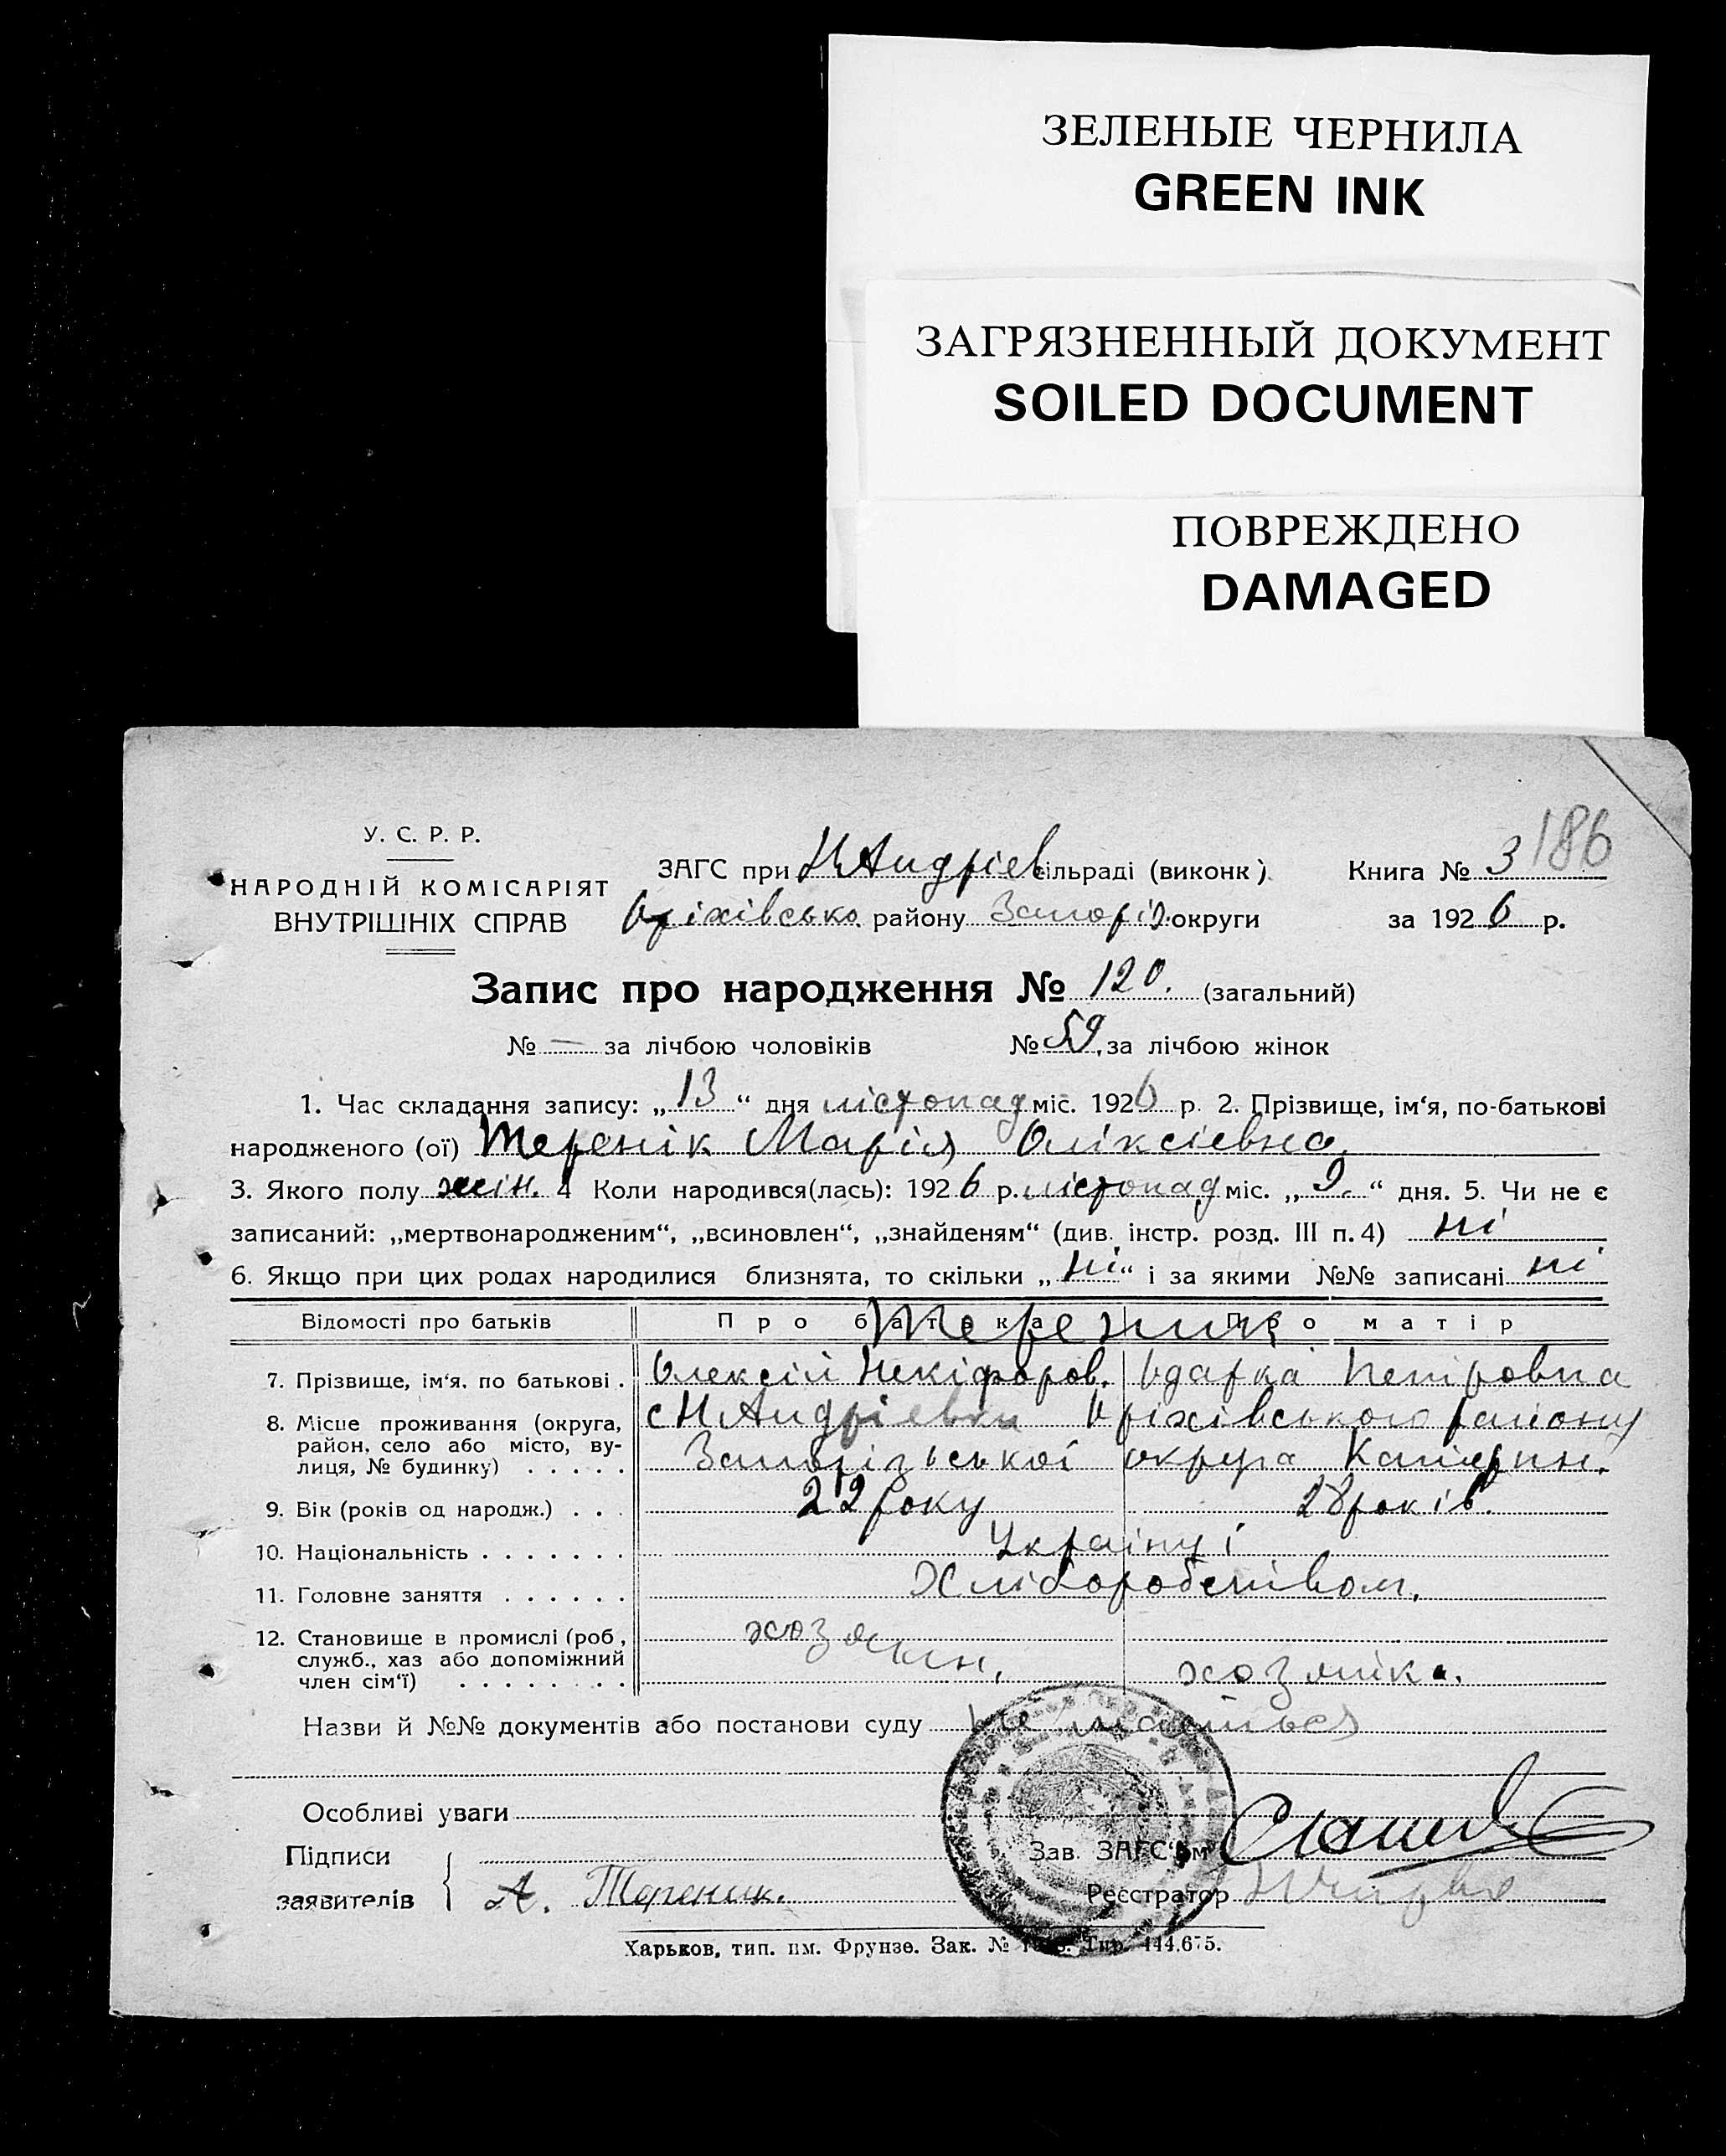 ЗЕЛЕНЫЕ ЧЕРНИЛА
GREEN INK
ЗАГРЯЗНЕННЫЙ ДОКУМЕНТ
SOILED DOCUMENT
ПОВРЕЖДЕНО
DAMAGED
186
У. С. Р. Р.
НАРОДНІЙ КОМІСАРІЯТ
ВНУТРІШНІХ СПРАВ
ЗАГС при Н Андріев сільраді (виконк.) Книга № 3
Оріхівсько району Запоріз. округи за 1926 р.
Запис про народження № 120. (загальний)
№ — за лічбою чоловіків № 59, за лічбою жінок
1. Час складання запису: „13“ дня лістопад міс. 1926 р. 2. Прізвище, ім‘я, по-батькові
народженого (ої) Теренік Марія Оліксіевна.
3. Якого полу жін. 4 Коли народився(лась): 1926 р. лістопад міс. „9.“ дня. 5. Чи не є
записаний: „мертвонародженим“, „всиновлен“, „знайденям“ (див. інстр. розд. III п. 4) ні
6. Якщо при цих родах народилися близнята, то скільки „ні“ і за якими №№ записані ні
Відомості про батьків Про батька Про матір
Тереник
7. Прізвище, ім‘я, по батькові . Олексій Некіфоров. Одарка Петровна
8. Місце проживання (округа, район, село або місто, вулиця, № будинку) . . . . . с Н Андріевки Оріхівського району
Запорізьської округа Катерин.
9. Вік (років од народж.) . . . 22 року 28 років.
10. Національність . . . . . . . Украінці
11. Головне заняття . . . . . . Хліборобством.
12. Становище в промислі (роб., служб., хаз або допоміжний член сім‘ї) . . . . . . . . хозяин. хозяйка.
Назви й №№ документів або постанови суду не мається
Особливі уваги
Підписи
заявителів А. Тереник.
Зав. ЗАГС‘ом
Реєстратор
Харьков, тип. им. Фрунзе. Зак. № Тир. 444.675.